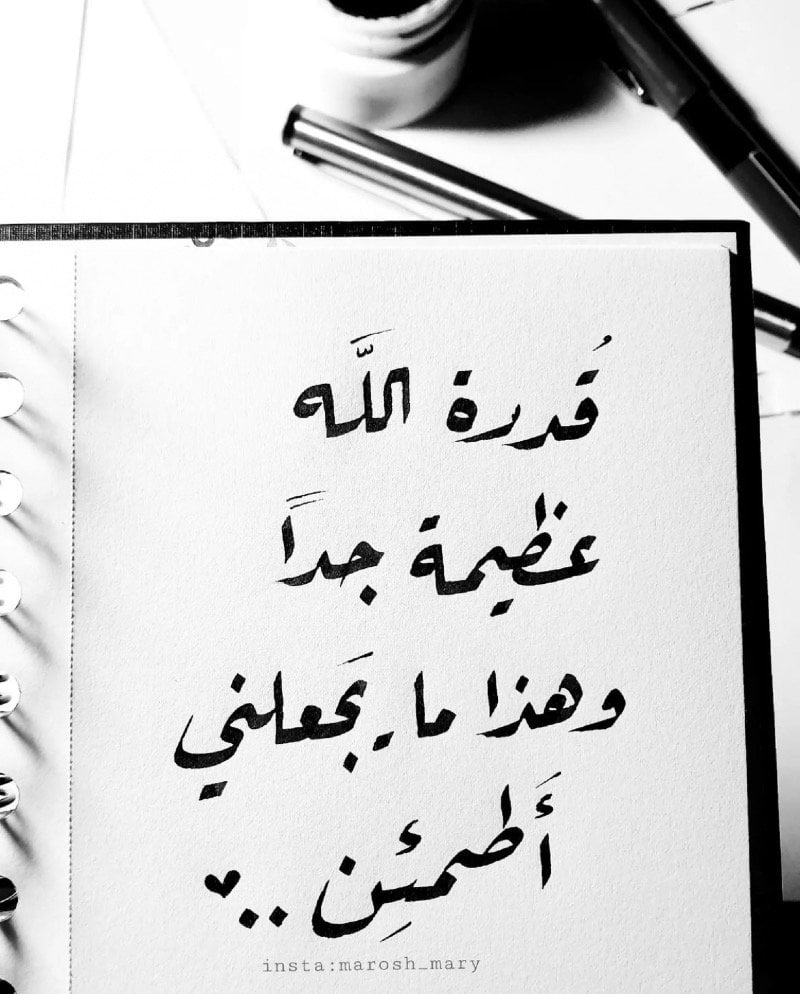 قُدرة اللَّه
عظيمة جداً
وهذا ما يَجعلني
أَطمئِن ..♥
insta:marosh_mary